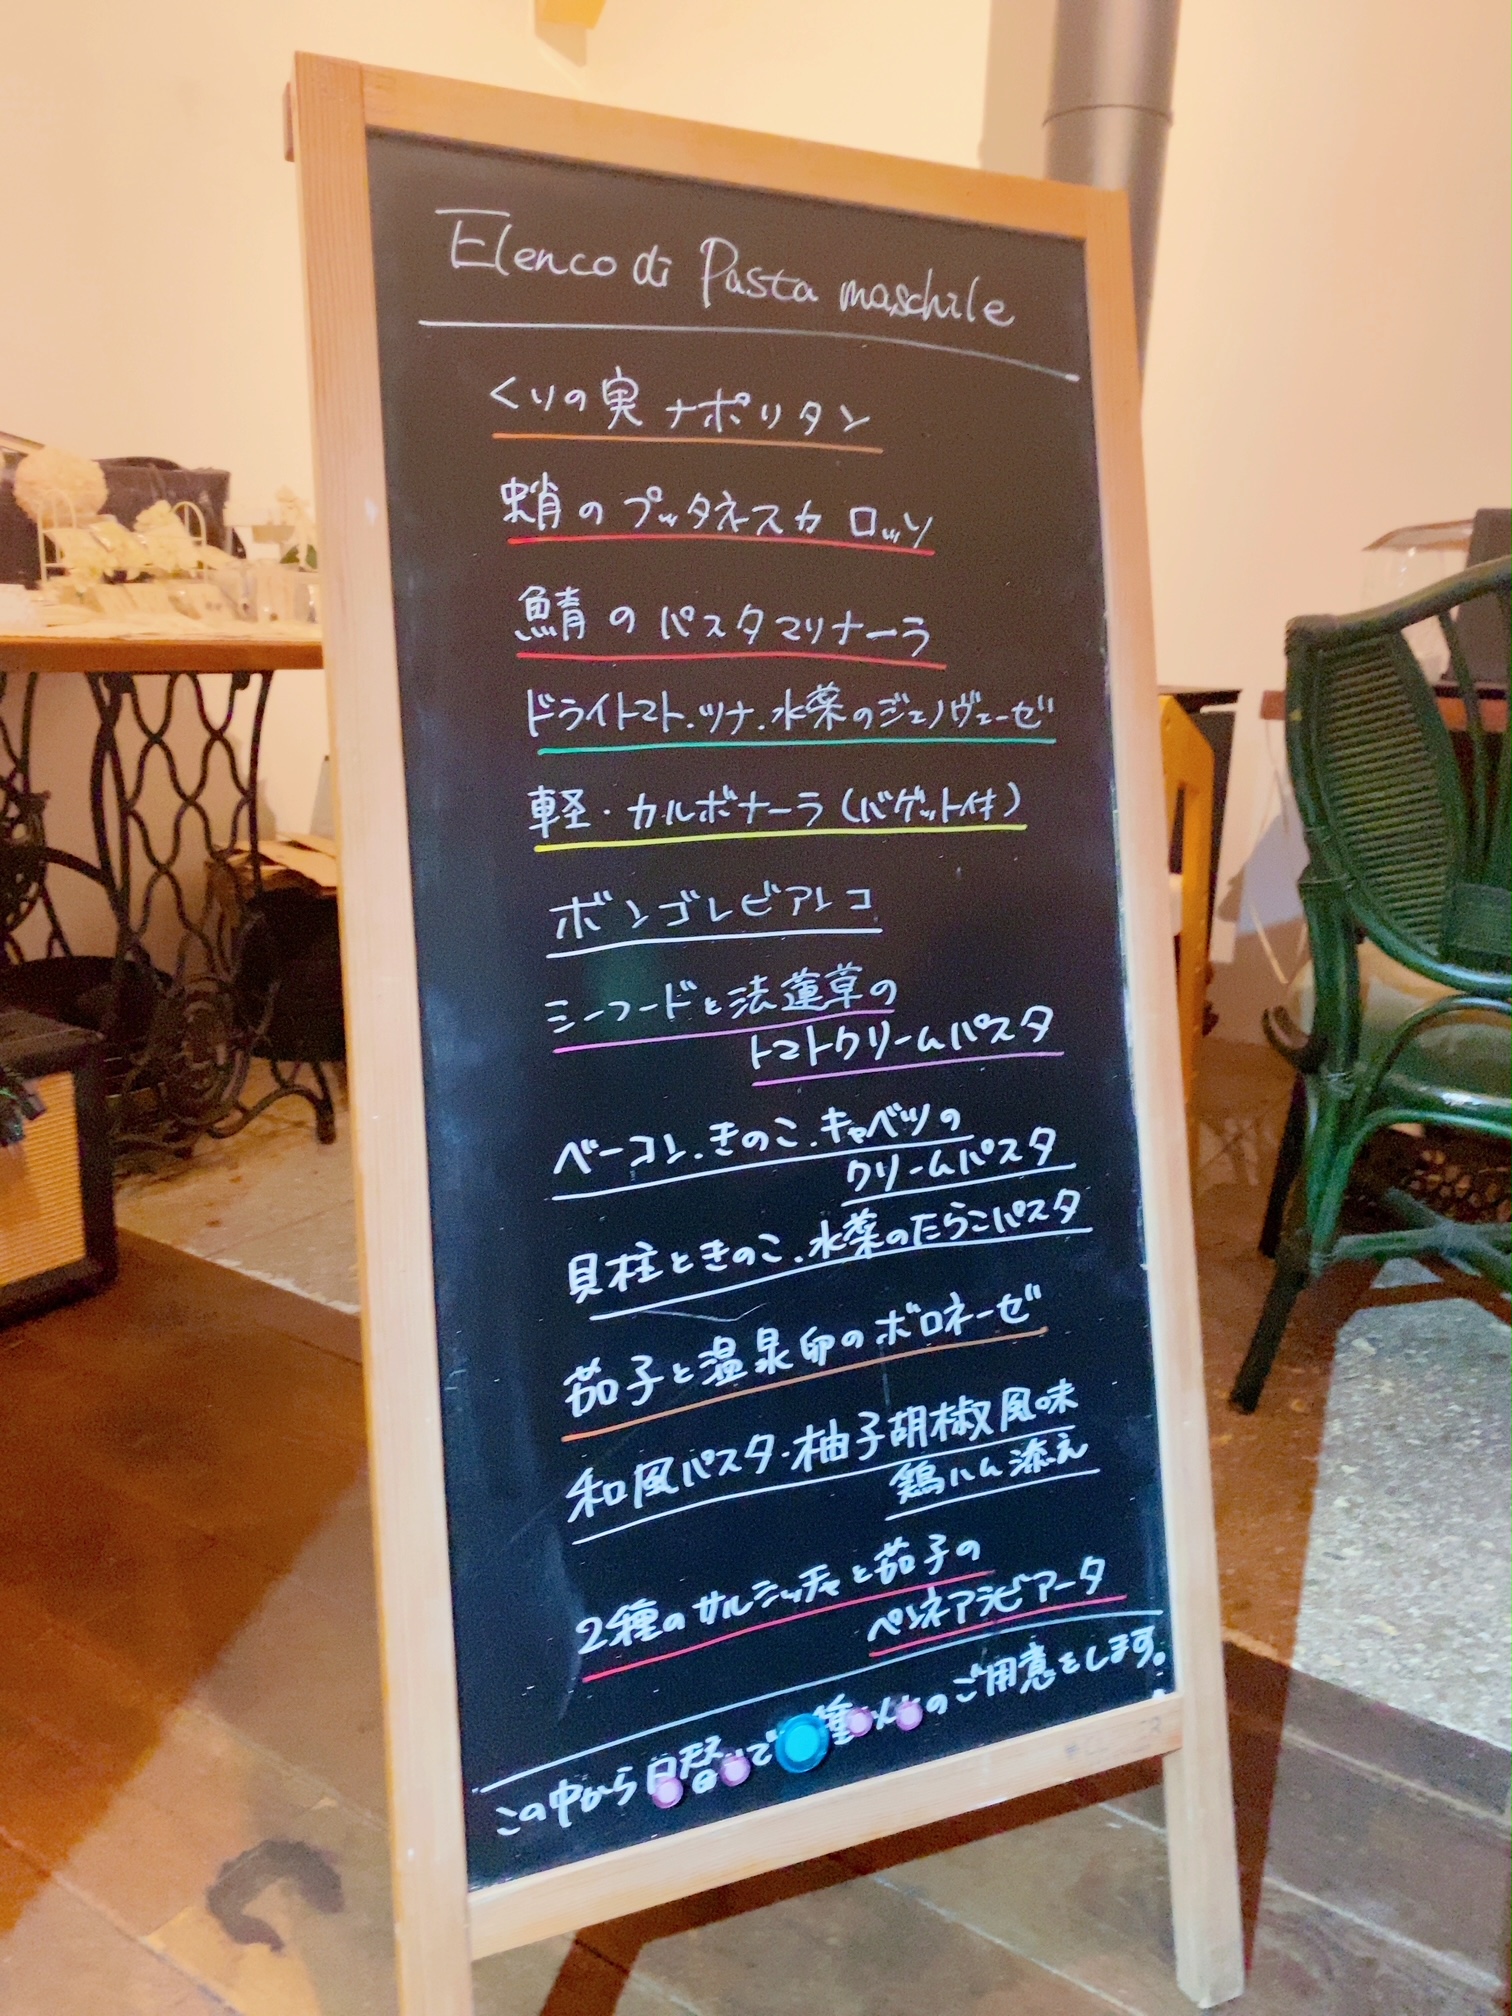 Elenco di Pasta maschile
くりの実 ナポリタン
蛸のプッタネスカ ロッソ
鯖のパスタマリナーラ
ドライトマト.ツナ.水菜のジェノヴェーゼ
軽・カルボナーラ(バゲット付)
ボンゴレビアンコ
シーフードと法蓮草の
トマトクリームパスタ
ベーコン.きのこ.キャベツの
クリームパスタ
貝柱ときのこ.水菜のたらこパスタ
茄子と温泉卵のボロネーゼ
和風パスタ・柚子胡椒風味
鶏ハム添え
2種のサルシッチャと茄子の
ペンネアラビアータ
この中から日替 で 種 のご用意をします。